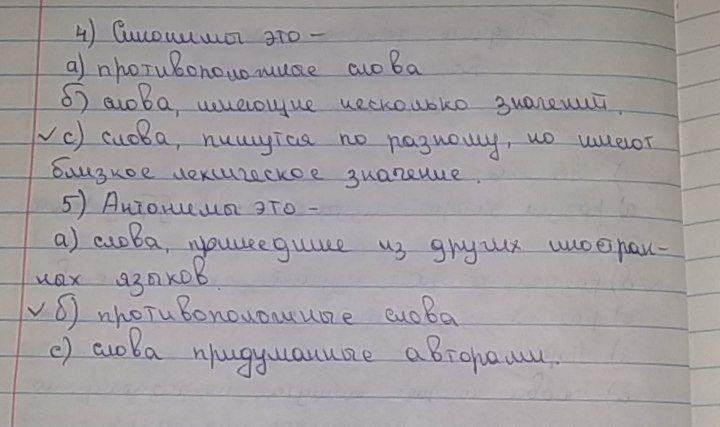 4) Синонимы это -
а) противоположные слова
б) слова, имеющие несколько значений.
✓ с) слова, пишутся по разному, но имеют
близкое лексическое значение.
5) Антонимы это -
а) слова, пришедшие из других иностран-
ных языков.
✓ б) противоположные слова
с) слова придуманные авторами.